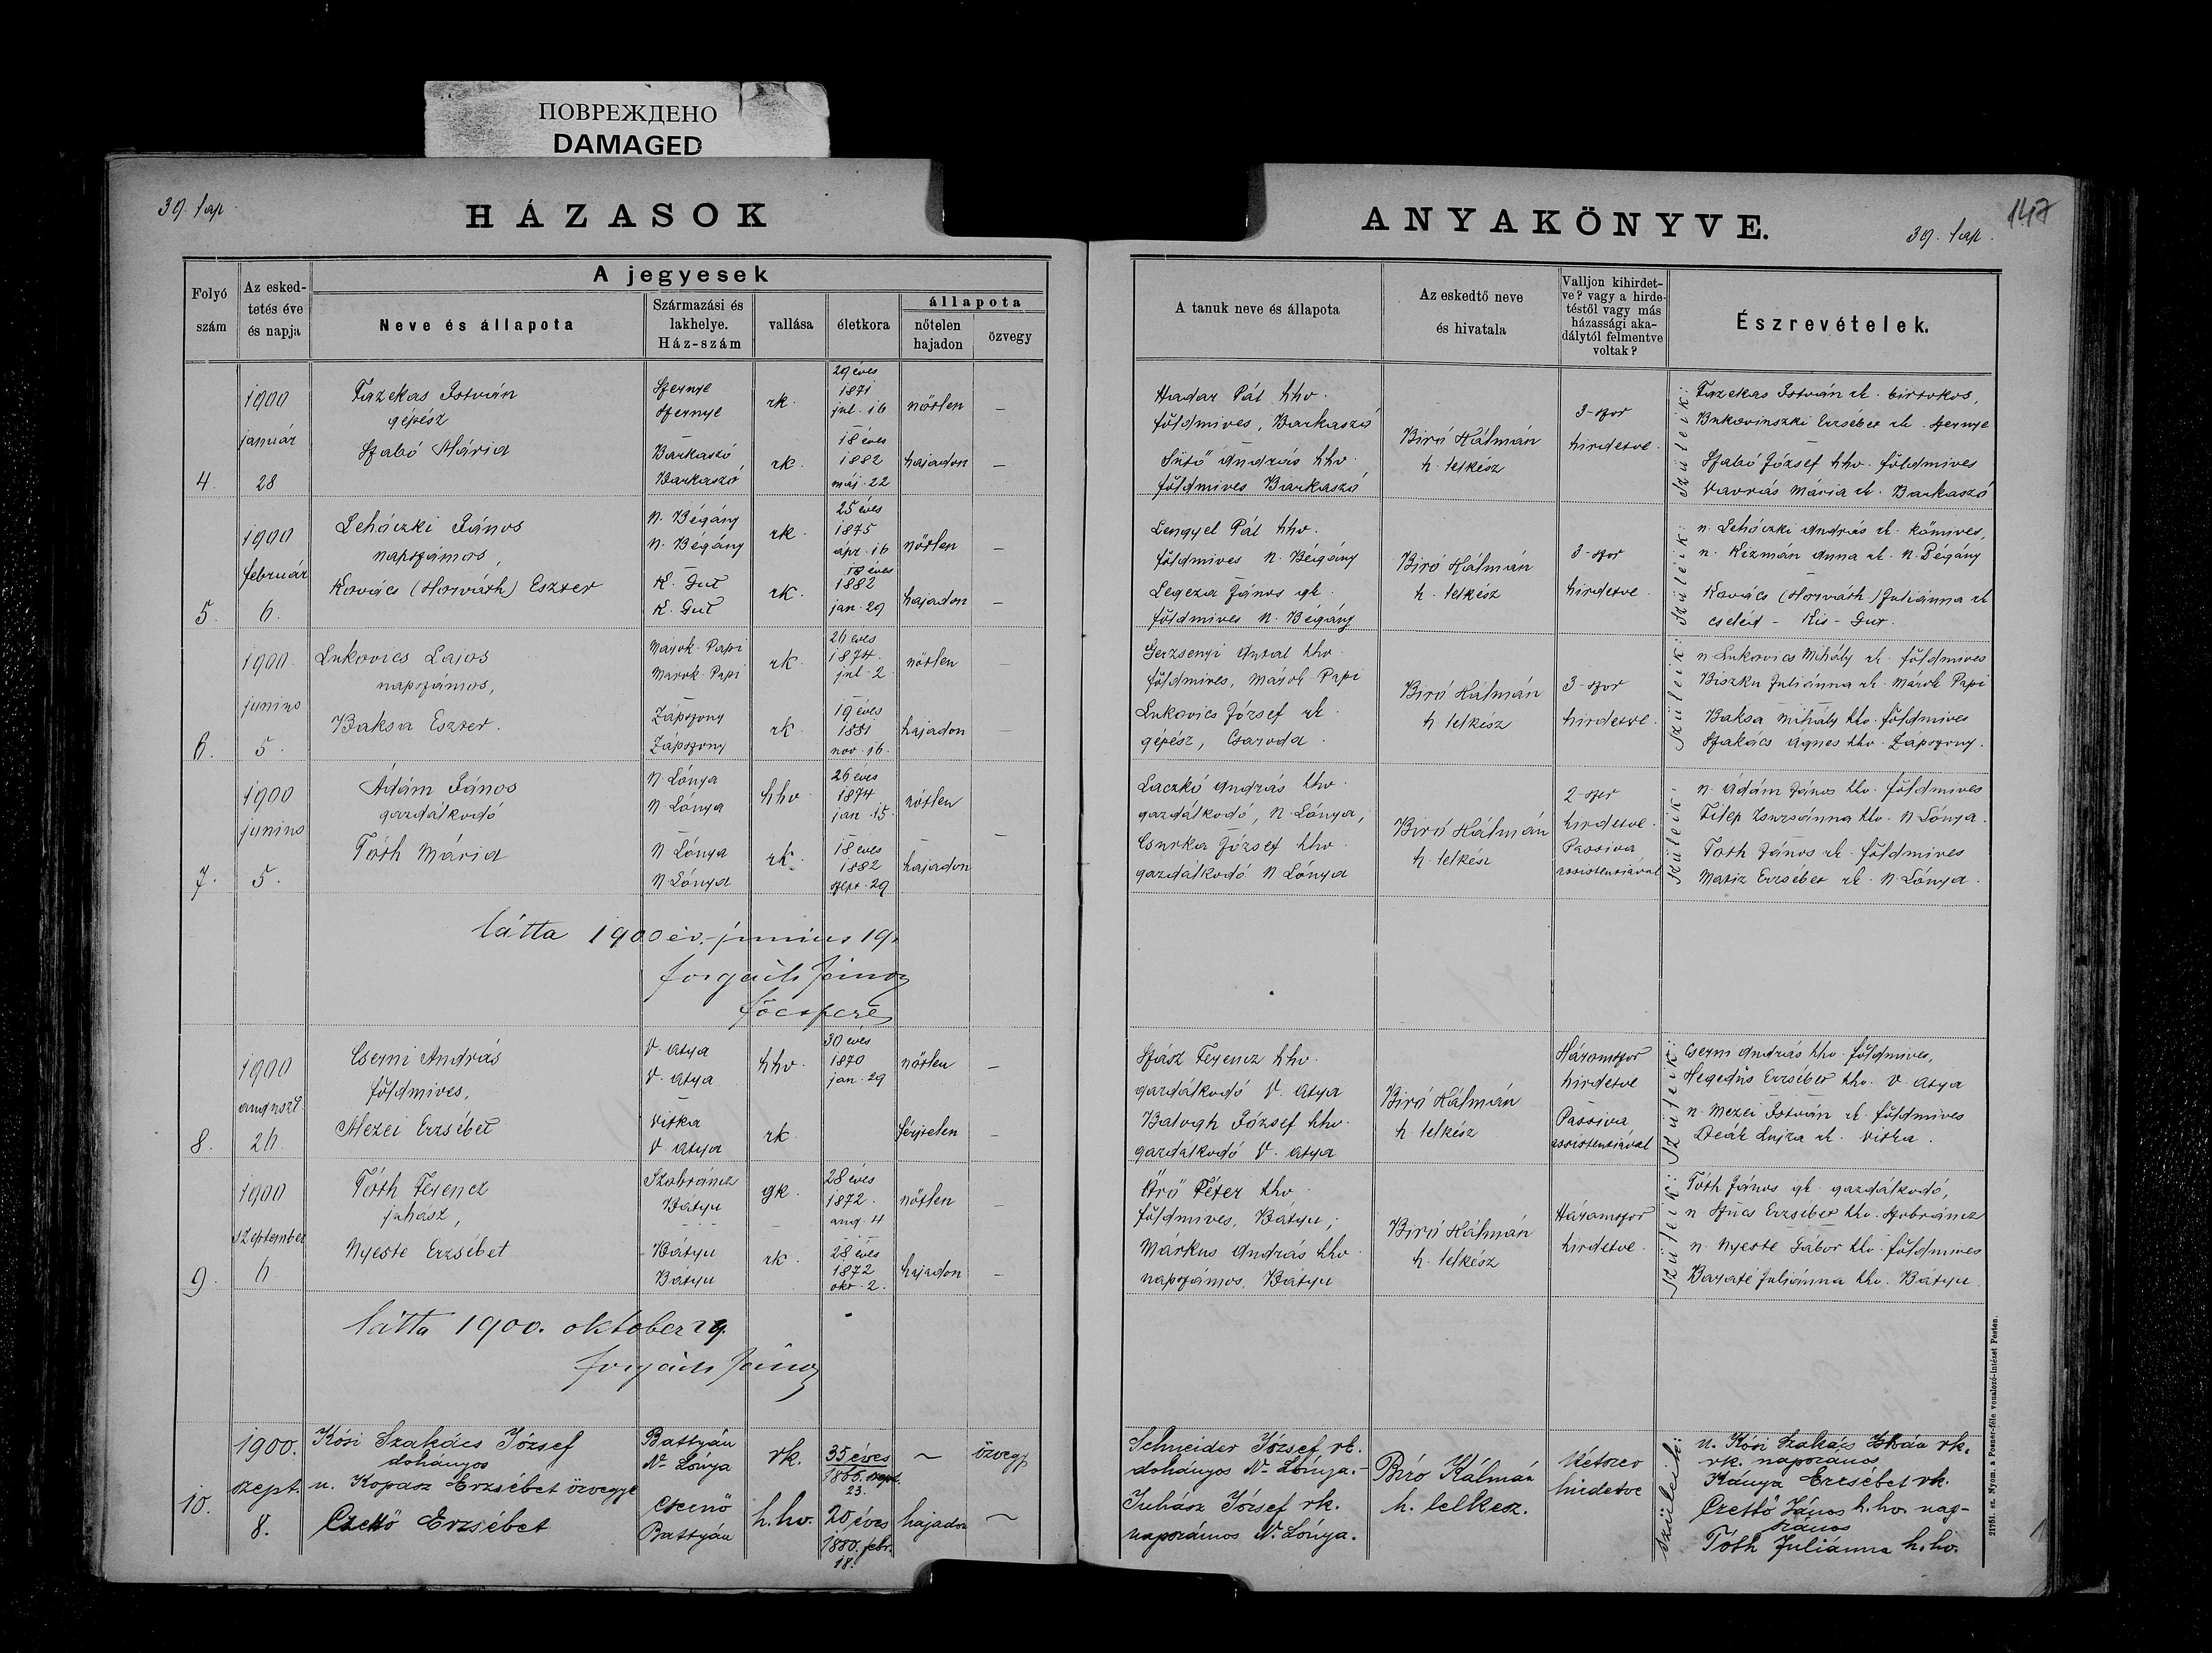 ПОВРЕЖДЕНО
DAMAGED
39. lap
HÁZASOK
Folyó szám
Az esked-
tetés éve
és napja
A jegyesek
Neve és állapota
Származási és
lakhelye.
Ház-szám
vallása
életkora
állapota
nőtelen
hajadon
özvegy
4.
1900
január
28
Fazekas István
gépész
Szabó Mária
Szernye
Szernye
Barkaszó
Barkaszó
rk.
rk.
29 éves
1871
jul. 16
18 éves
1882
máj. 22
nőtlen
hajadon
5.
1900
február
6.
Leháczki János
napszámos,
Kovács (Horváth) Eszter
N. Bégány
N. Bégány
K. Gut
K. Gut
rk.
rk.
25 éves
1875
ápr. 16
18 éves
1882
jan. 29
nőtlen
hajadon
6.
1900
junius
5.
Lukovics Lajos
napszámos,
Baksa Eszter.
Márok-Papi
Márok-Papi
Zápszony
Zápszony
rk.
rk.
26 éves
1874
jul. 2
19 éves
1881
nov. 16.
nőtlen
hajadon
7.
1900
junius
5.
Ádám János
gazdálkodó
Tóth Mária
N. Lónya
N. Lónya
N. Lónya
N. Lónya
hhv.
rk.
26 éves
1874
jan. 15.
18 éves
1882
szept. 29
nőtlen
hajadon
látta 1900 év. junius 19.
Forgách János
főesperes
8.
1900
auguszt
26
Cserni András
földmives,
Mezei Erzsébet
V. Atya
V. Atya
Vitka
V. Atya
hhv.
rk.
30 éves
1870
jan. 29
nőtlen
férjtelen
9.
1900
szeptember
6
Tóth Ferencz
juhász,
Nyeste Erzsébet
Szobráncz
Bátyu
Bátyu
Bátyu
gk.
rk.
28 éves
1872.
aug. 4
28 éves
1872
okt. 2.
nőtlen
hajadon
látta 1900. oktober 29.
Forgách János
10.
1900.
szept.
8.
Kósi Szakács József
dohányos
n. Kopasz Erzsébet özvegye
Czettő Erzsébet
Battyán
N. Lónya
Battyán
rk.
h.hv.
35 éves
1866. szept.
23.
20 éves
1880. febr.
18.
~
hajadon
özvegy
~
ANYAKÖNYVE.
39. lap.
147
A tanuk neve és állapota
Az eskedtő neve
és hivatala
Valljon kihirdet-
ve? vagy a hirde-
téstől vagy más
házassági aka-
dálytól felmentve
voltak?
Észrevételek.
Hadar Pál hhv.
földmives, Barkaszó
Sütő András hhv.
földmives Barkaszó
Biró Kálmán
h. lelkész
3-szor
hirdetve.
Szüleik:
Fazekas István rk. birtokos,
Bukovinszki Erzsébet rk. Szernye
Szabó József hhv. földmives
Vavrás Mária rk. Barkaszó
Lengyel Pál hhv.
földmives N. Bégány
Legeza János gk.
földmives N. Bégány
Biró Kálmán
h. lelkész
3-szor
hirdetve
Szüleik:
n. Leháczki András rk. kőmives,
n. Kezmán Anna rk. N. Bégány
Kovács (Horváth) Juliánna rk
cseléd - Kis-Gut.
Gerzsenyi Antal hhv.
földmives, Márok-Papi
Lukovics József rk.
gépész, Csaroda.
Biró Kálmán
h. lelkész
3-szor
hirdetve.
Szüleik:
n. Lukovics Mihály rk. földmives
Biszku Juliánna rk. Márok-Papi
Baksa Mihály hhv. földmives
Szakács Ágnes hhv. Zápszony.
Laczkó András hhv.
gazdálkodó, N. Lónya,
Csurka József hhv.
gazdálkodó N. Lónya
Biró Kálmán
h. lelkész
2-szer
hirdetve.
Passiva
assistentiával
Szüleik:
n. Ádám János hhv. földmives
Filep Zsuzsánna hhv. N. Lónya.
Tóth János rk. földmives
Matiz Erzsébet rk. N. Lónya.
Szász Ferencz hhv.
gazdálkodó V. Atya
Balogh József hhv.
gazdálkodó V. Atya
Biró Kálmán
h. lelkész
Háromszor
hirdetve
Passiva
assistentiával
Szüleik:
Cserni András hhv. földmives,
Hegedüs Erzsébet hhv. V. Atya
n. Mezei István rk. földmives
Deák Lujza rk. Vitka.
Örő Péter hhv
földmives, Bátyu,
Márkus András hhv
napszámos, Bátyu
Biró Kálmán
h. lelkész
Háromszor
hirdetve.
Szüleik:
Tóth János gk. gazdálkodó,
n. Szücs Erzsébet hhv. Szobráncz
n. Nyeste Gábor hhv. földmives
Juliánna hhv. Bátyu
Schneider József rk.
dohányos N. Lónya.-
Juhász József rk.
napszámos N. Lónya.
Biró Kálmán
h. lelkesz.
Kétszer
hirdetve
Szüleik:
n. Kósi Szakács István rk.
rk. napszámos
Kánya Erzsébet rk.
Czettő János h.hv. nap-
számos
Tóth Juliánna h.hv.
21751. sz. Nyom. a Posner-féle vonalozó-intézet Pesten.